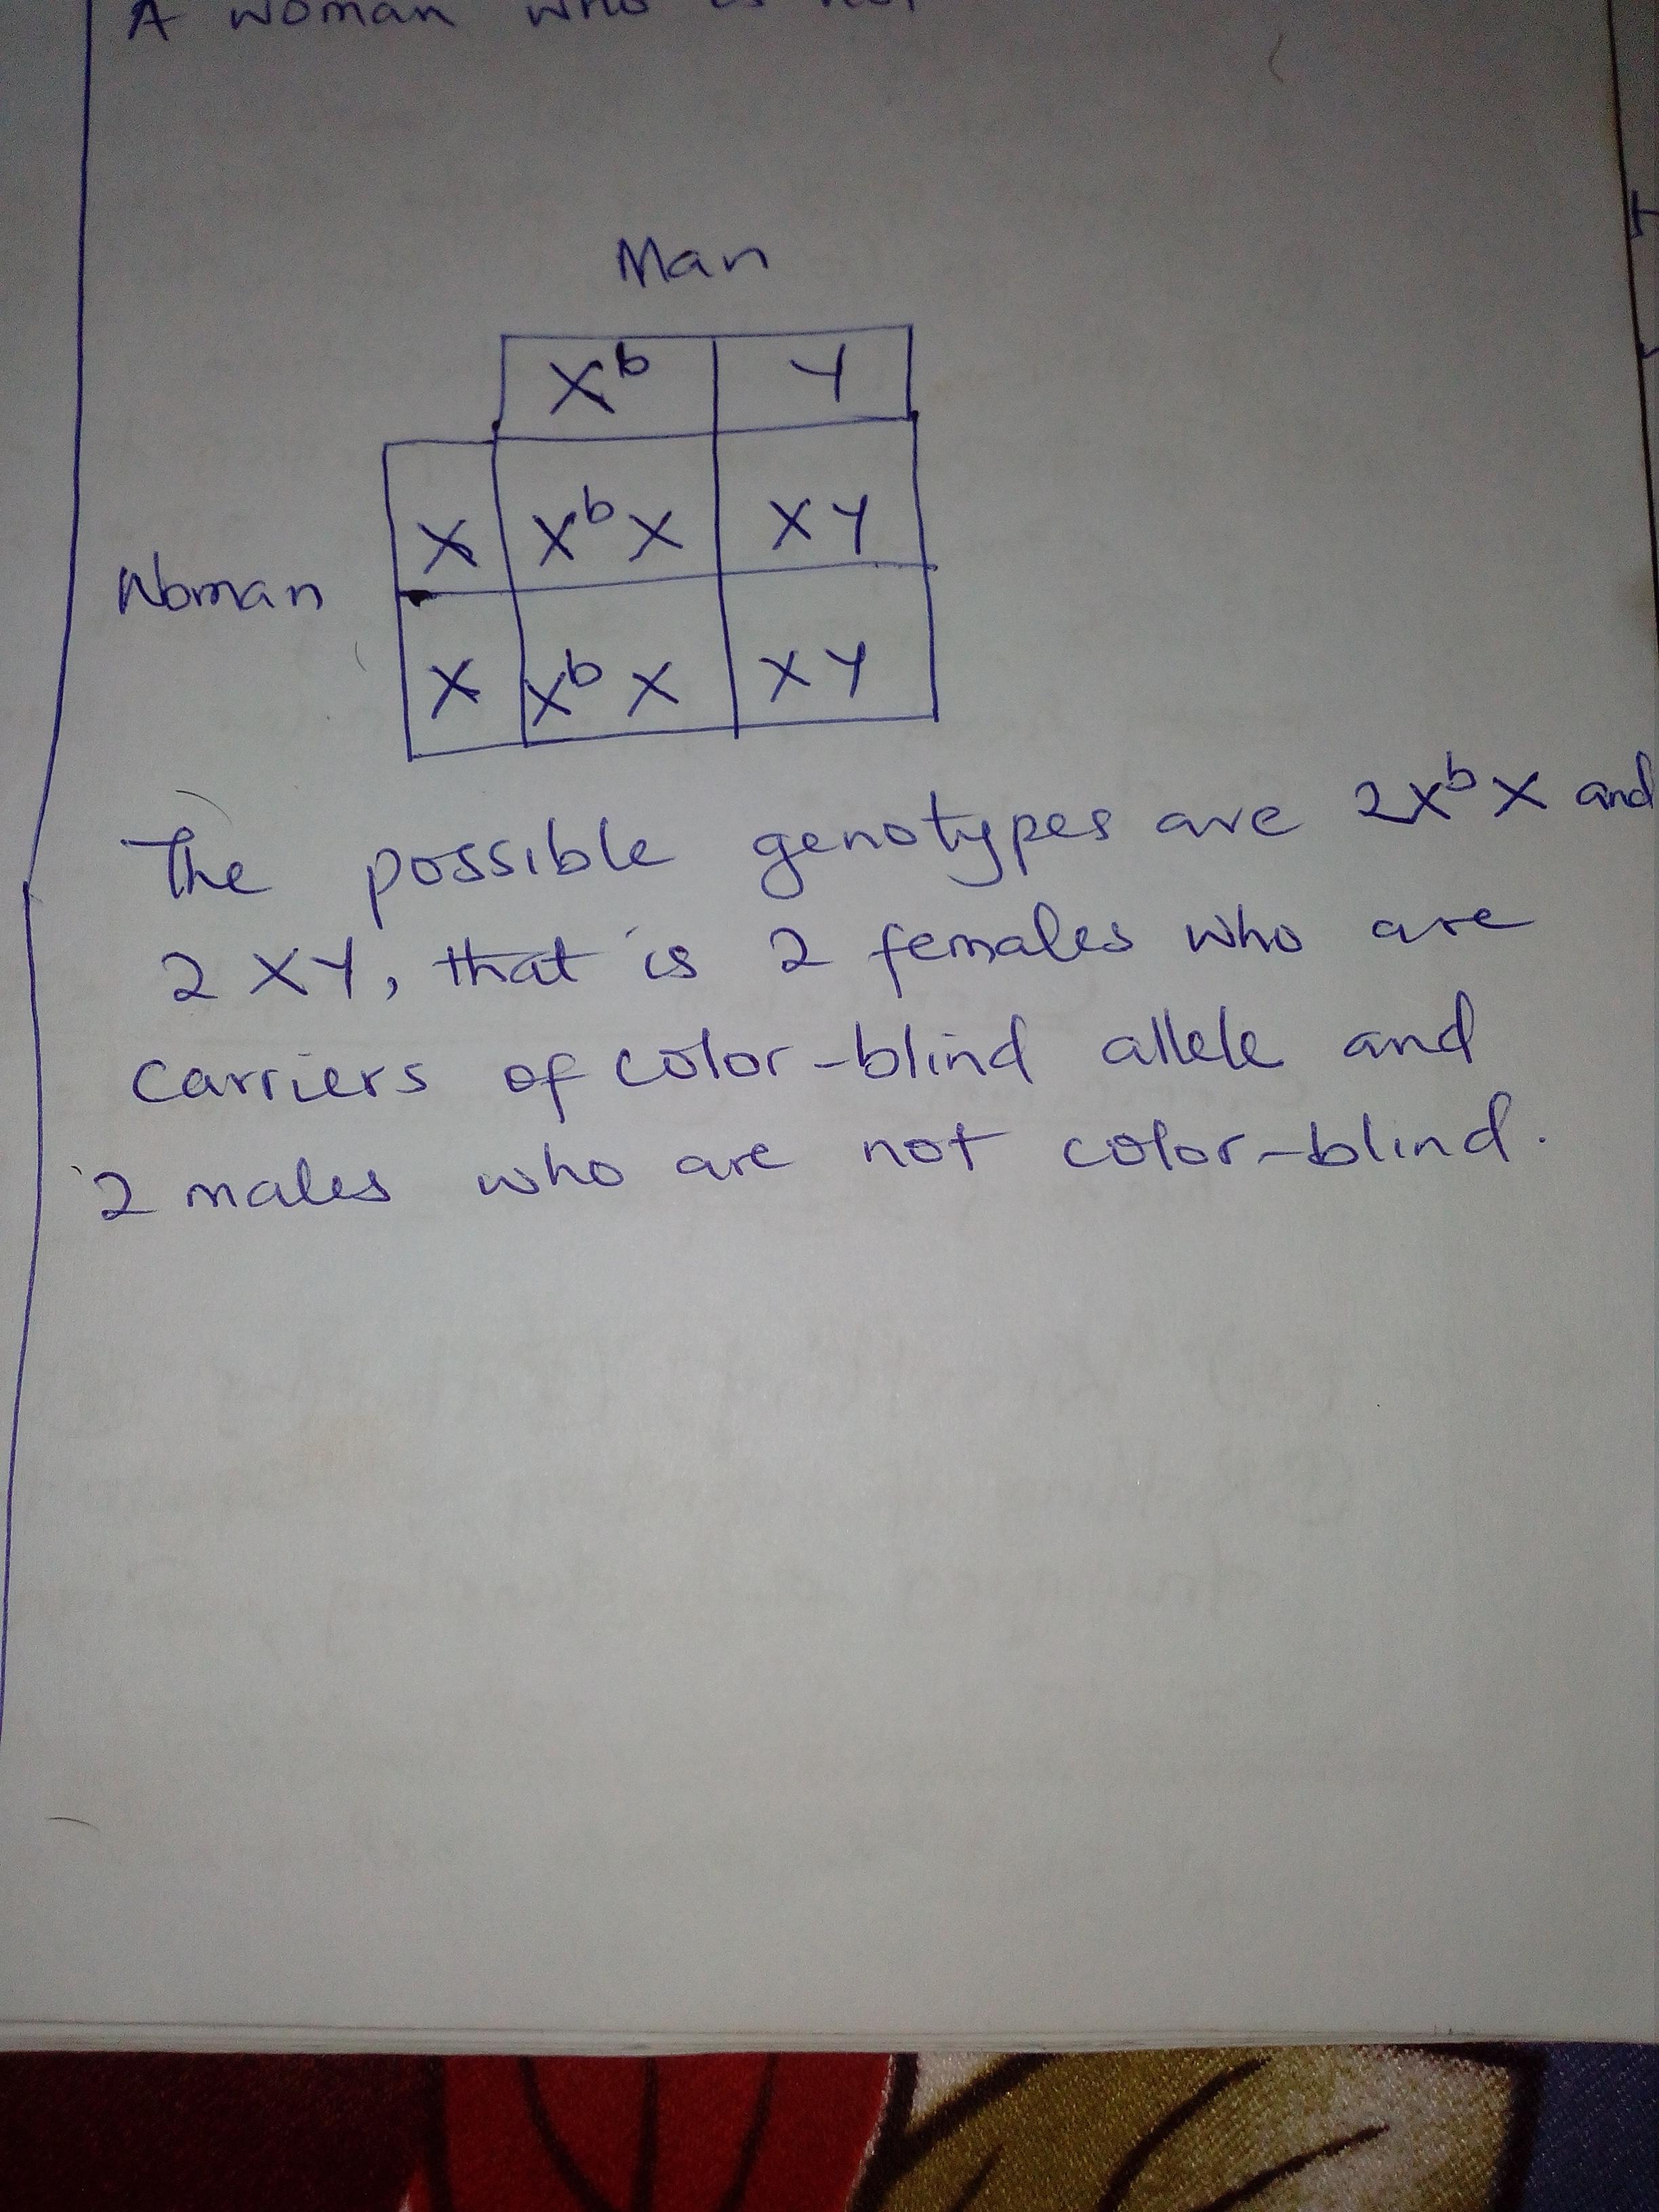 A woman who is not
Man
X^b Y
X X^b X XY
Woman
X X^b X XY
The possible genotypes are 2X^b X and
2 XY, that is 2 females who are
carriers of color-blind allele and
2 males who are not color-blind.